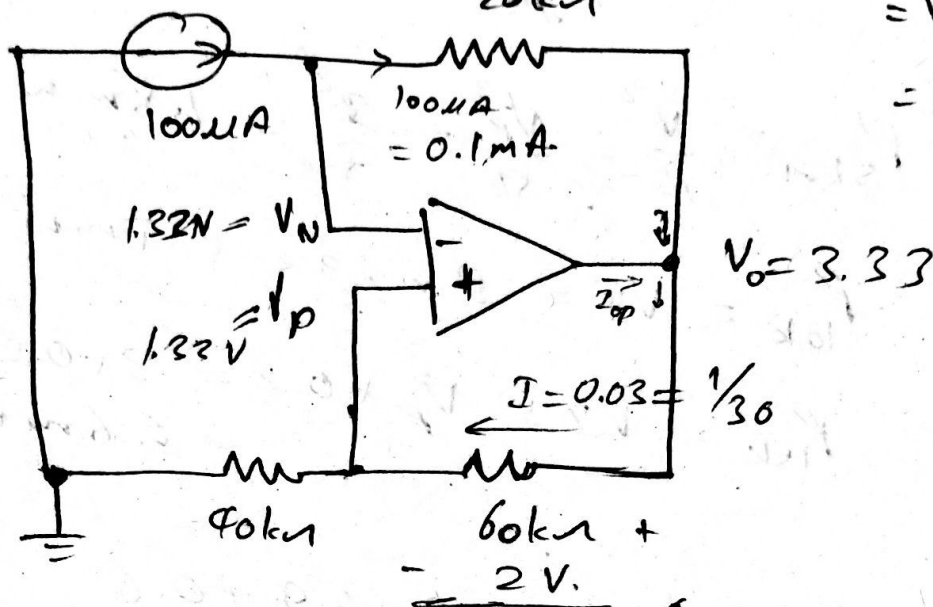 20kΩ
=
=
100μA
100μA
= 0.1mA.
1.33V = VN
-
+
1.33V = Vp
Iop
I
V₀ = 3.33
I = 0.03 = 1/30
40kΩ
60kΩ +
- 2V.